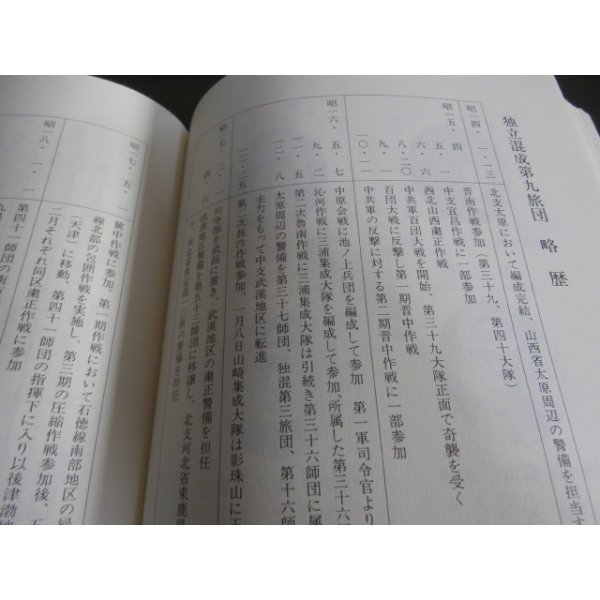 独立混成第九旅団　略歴
昭一四・一・一三　北支太原において編成完結、山西省太原周辺の警備を担当す
晋南作戦参加（第三十九、第四十大隊）
昭一五・四　中支宜昌作戦に一部参加
五・六　西北山西粛正作戦
八・二〇　中共軍百団大戦を開始、第三十九大隊正面で奇襲を受く
百団大戦に反撃し第一期晋中作戦に参加
一〇・二　中共軍の反撃に対する第二期晋中作戦に一部参加
昭一六・五・七　中原会戦に池ノ上兵団を編成して参加　第一軍司令官より
九・二　沁河作戦に三浦集成大隊を編成して参加、所属した第三十六師
第二次魯南作戦に三浦集成大隊は引続き第三十六師団に属
太原周辺の警備を第三十七師団、独混第三旅団、第十六師
主力をもって中支武漢地区に転進
二・二五　第二次長沙作戦参加、一月八日山崎集成大隊は影珠山に玉
昭一七・　司令部を武昌に置き、武漢地区の粛正警備を担任
四・六　武漢地区警備を第五十三師団に移譲し、北支河北省束鹿
の警備を担任
昭一七・五・一　冀中作戦に参加、第一期作戦において石徳線南部地区の掃
線北部の包囲作戦を実施し、第三期の圧縮作戦参加後、五
（天津）に移動、第四十一師団の指揮下に入り以後津渤地
二月それぞれ同区粛正作戦に参加
昭一八・一・一　第四十一師団の南